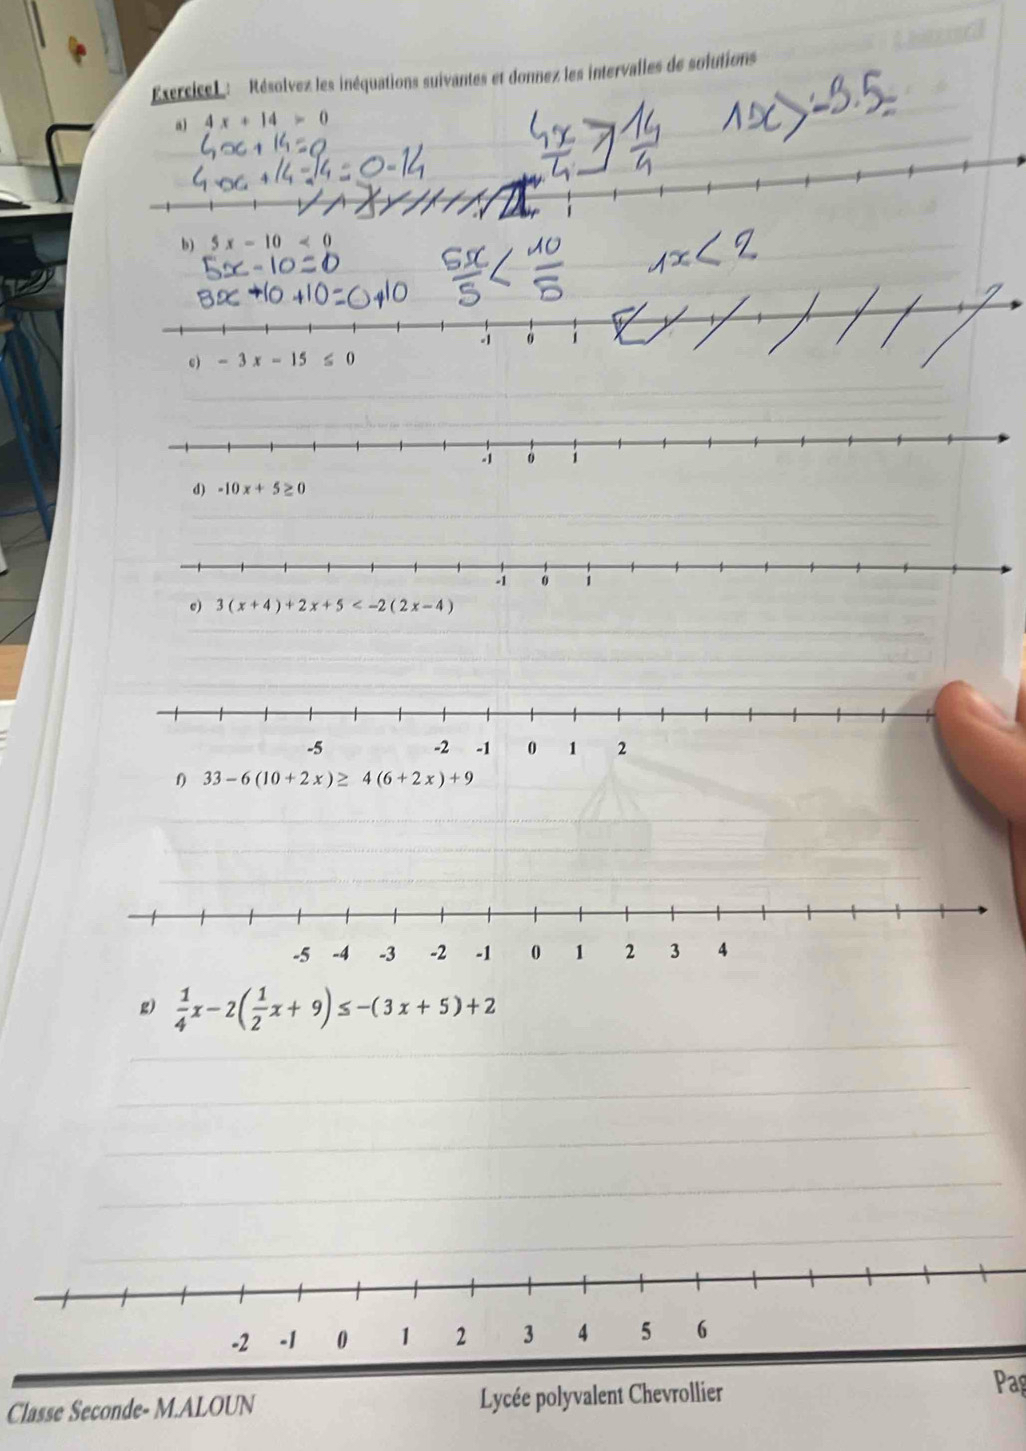 Exercice1 : Résolvez les inéquations suivantes et donnez les intervalles de solutions
a) 4 x + 14 > 0
4x + 14 = 0
4x + 14 - 14 = 0 - 14
4x/4 > 14/4
1x > -3.5
b) 5 x - 10 < 0
5x - 10 = 0
5x + 10 + 10 = 0 + 10
5x/5 < 10/5
1x < 2
-1 0 1
c) - 3 x - 15 ≤ 0
-1 0 1
d) -10 x + 5 ≥ 0
-1 0 1
e) 3 ( x + 4 ) + 2 x + 5 < -2 ( 2 x - 4 )
-5 -2 -1 0 1 2
f) 33 - 6 ( 10 + 2 x ) ≥ 4 ( 6 + 2 x ) + 9
-5 -4 -3 -2 -1 0 1 2 3 4
g) 1/4 x - 2 ( 1/2 x + 9 ) ≤ - ( 3 x + 5 ) + 2
-2 -1 0 1 2 3 4 5 6
Classe Seconde- M.ALOUN Lycée polyvalent Chevrollier Pag